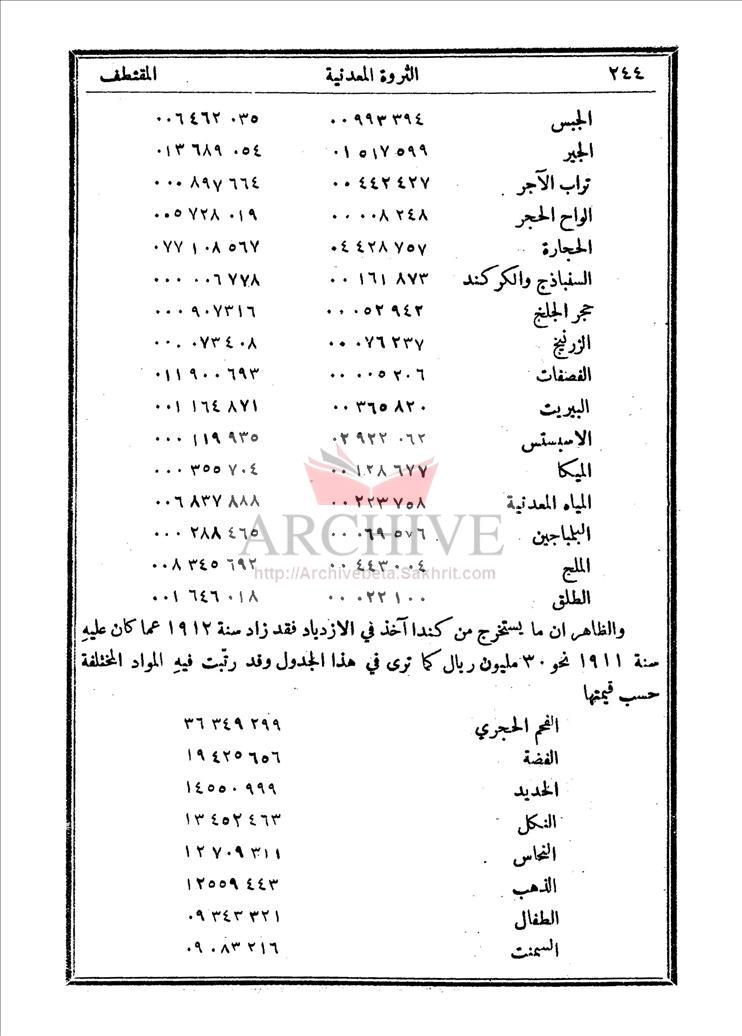 ٢٤٤ الثروة المعدنية المقتطف
الجبس ٠٠ ٩٩٣ ٣٩٤ ٠٠٦ ٤٦٢ ٠٣٥
الجير ٠١ ٥١٧ ٥٩٩ ٠١٣ ٦٨٩ ٠٥٤
تراب الآجر ٠٠ ٤٤٢ ٤٢٧ ٠٠٠ ٨٩٧ ٦٦٤
الواح الحجر ٠٠ ٠٠٨ ٢٤٨ ٠٠٥ ٧٢٨ ٠١٩
الحجارة ٠٤ ٤٢٨ ٧٥٧ ٠٧٧ ١٠٨ ٥٦٧
السفباذج والكركند ٠٠ ١٦١ ٨٧٣ ٠٠٠ ٠٠٦ ٧٧٨
حجر الجلخ ٠٠ ٠٥٢ ٩٤٢ ٠٠٠ ٩٠٧٣١٦
الزرنيخ ٠٠ ٠٧٦ ٢٣٧ ٠٠٠ ٠٧٣ ٤٠٨
الفصفات ٠٠ ٠٠٥ ٢٠٦ ٠١١ ٩٠٠ ٦٩٣
البيريت ٠٠ ٣٦٥ ٨٢٠ ٠٠١ ١٦٤ ٨٧١
الاسبستس ٠٢ ٩٢٢ ٠٦٢ ٠٠٠ ١١٩ ٩٣٥
الميكا ٠٠ ١٢٨ ٦٧٧ ٠٠٠ ٣٥٥ ٧٠٤
المياه المعدنية ٠٠ ٢٢٣ ٧٥٨ ٠٠٦ ٨٣٧ ٨٨٨
البلباجين ٠٠ ٠٦٩ ٥٧٦ ٠٠٠ ٢٨٨ ٤٦٥
الملح ٠٠ ٤٤٣ ٠٠٤ ٠٠٨ ٣٤٥ ٦٩٢
الطلق ٠٠ ٠٢٢ ١٠٠ ٠٠١ ٦٤٦ ٠١٨
ARCHIVE
http://Archivebeta.Sakhrit.com
والظاهر ان ما يستخرج من كندا آخذ في الازدياد فقد زاد سنة ١٩١٢ عما كان عليهِ
سنة ١٩١١ نحو ٣٠ مليون ريال كما ترى في هذا الجدول وقد رتّبت فيهِ المواد المختلفة
حسب قيمتها
الفحم الحجري ٣٦ ٣٤٩ ٢٩٩
الفضة ١٩ ٤٢٥ ٦٥٦
الحديد ١٤٥٥٠ ٩٩٩
النكل ١٣ ٤٥٢ ٤٦٣
النحاس ١٢ ٧٠٩ ٣١١
الذهب ١٢٥٥٩ ٤٤٣
الطفال ٠٩ ٣٤٣ ٣٢١
السمنت ٠٩ ٠٨٣ ٢١٦